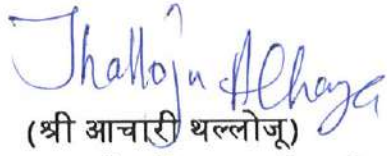 Thalloju Achary
(श्री आचारी थल्लोजू)